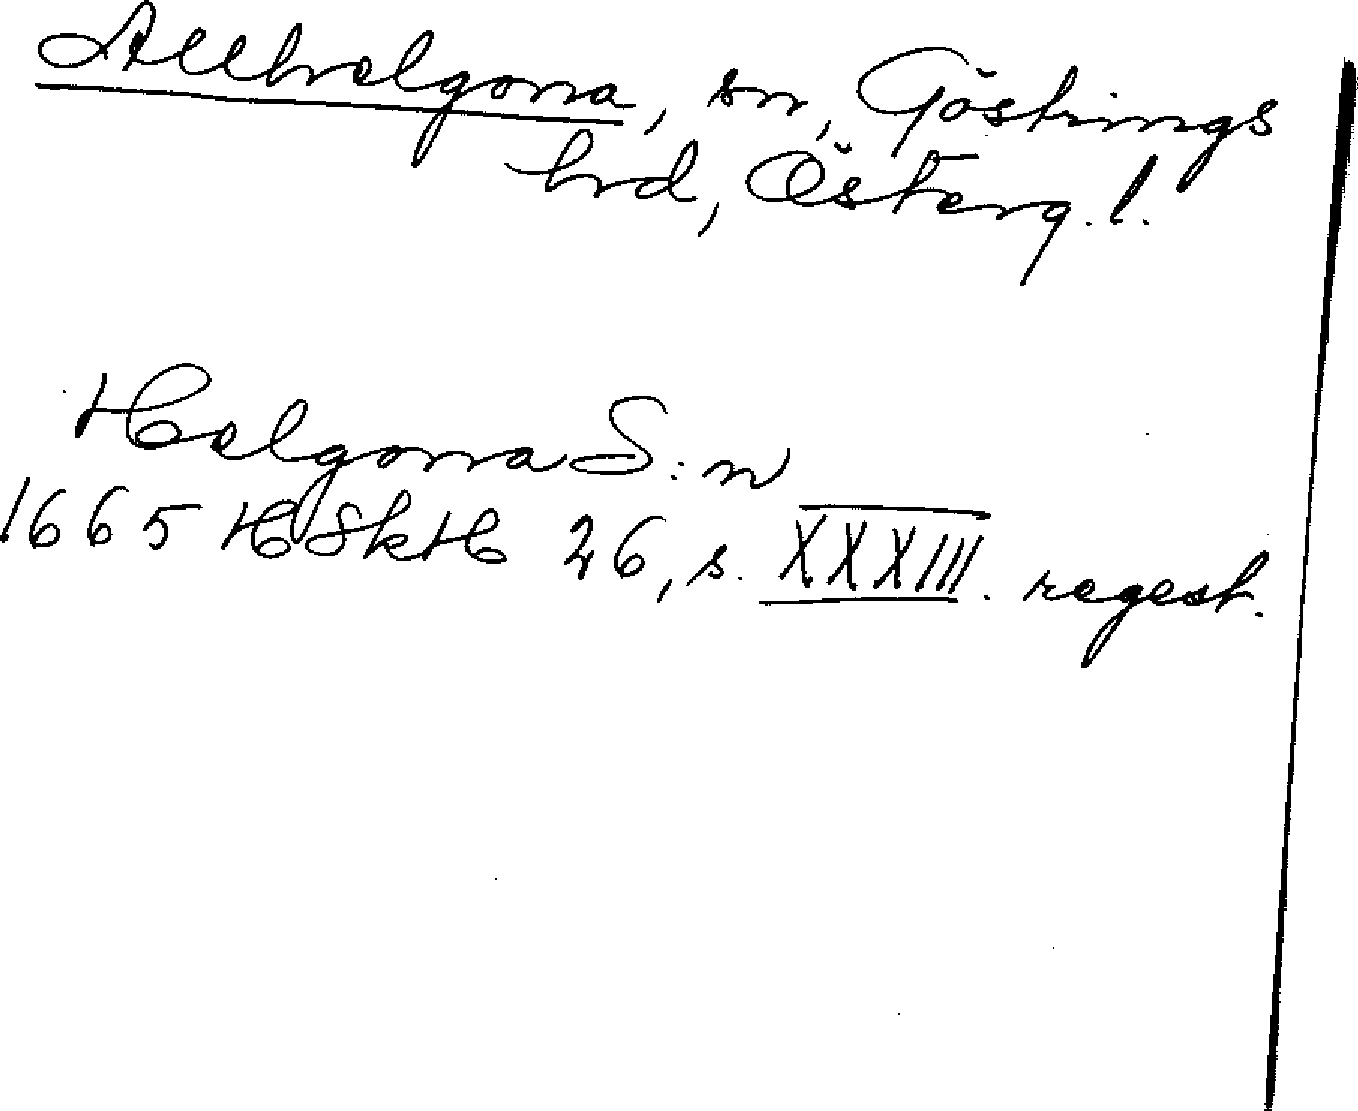 Allhelgona, sn, Göstrings
hrd, Österg. l.
Helgona S:n
1665 HSkH 26, s. XXXIII. regest.